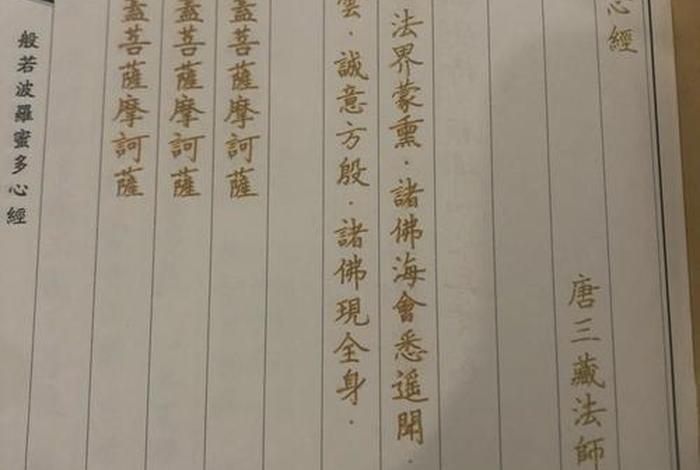 心經
唐三藏法師
法界蒙熏．諸佛海會悉遥聞．
雲．誠意方殷．諸佛現全身．
蓋菩薩摩訶薩
蓋菩薩摩訶薩
蓋菩薩摩訶薩
般若波羅蜜多心經